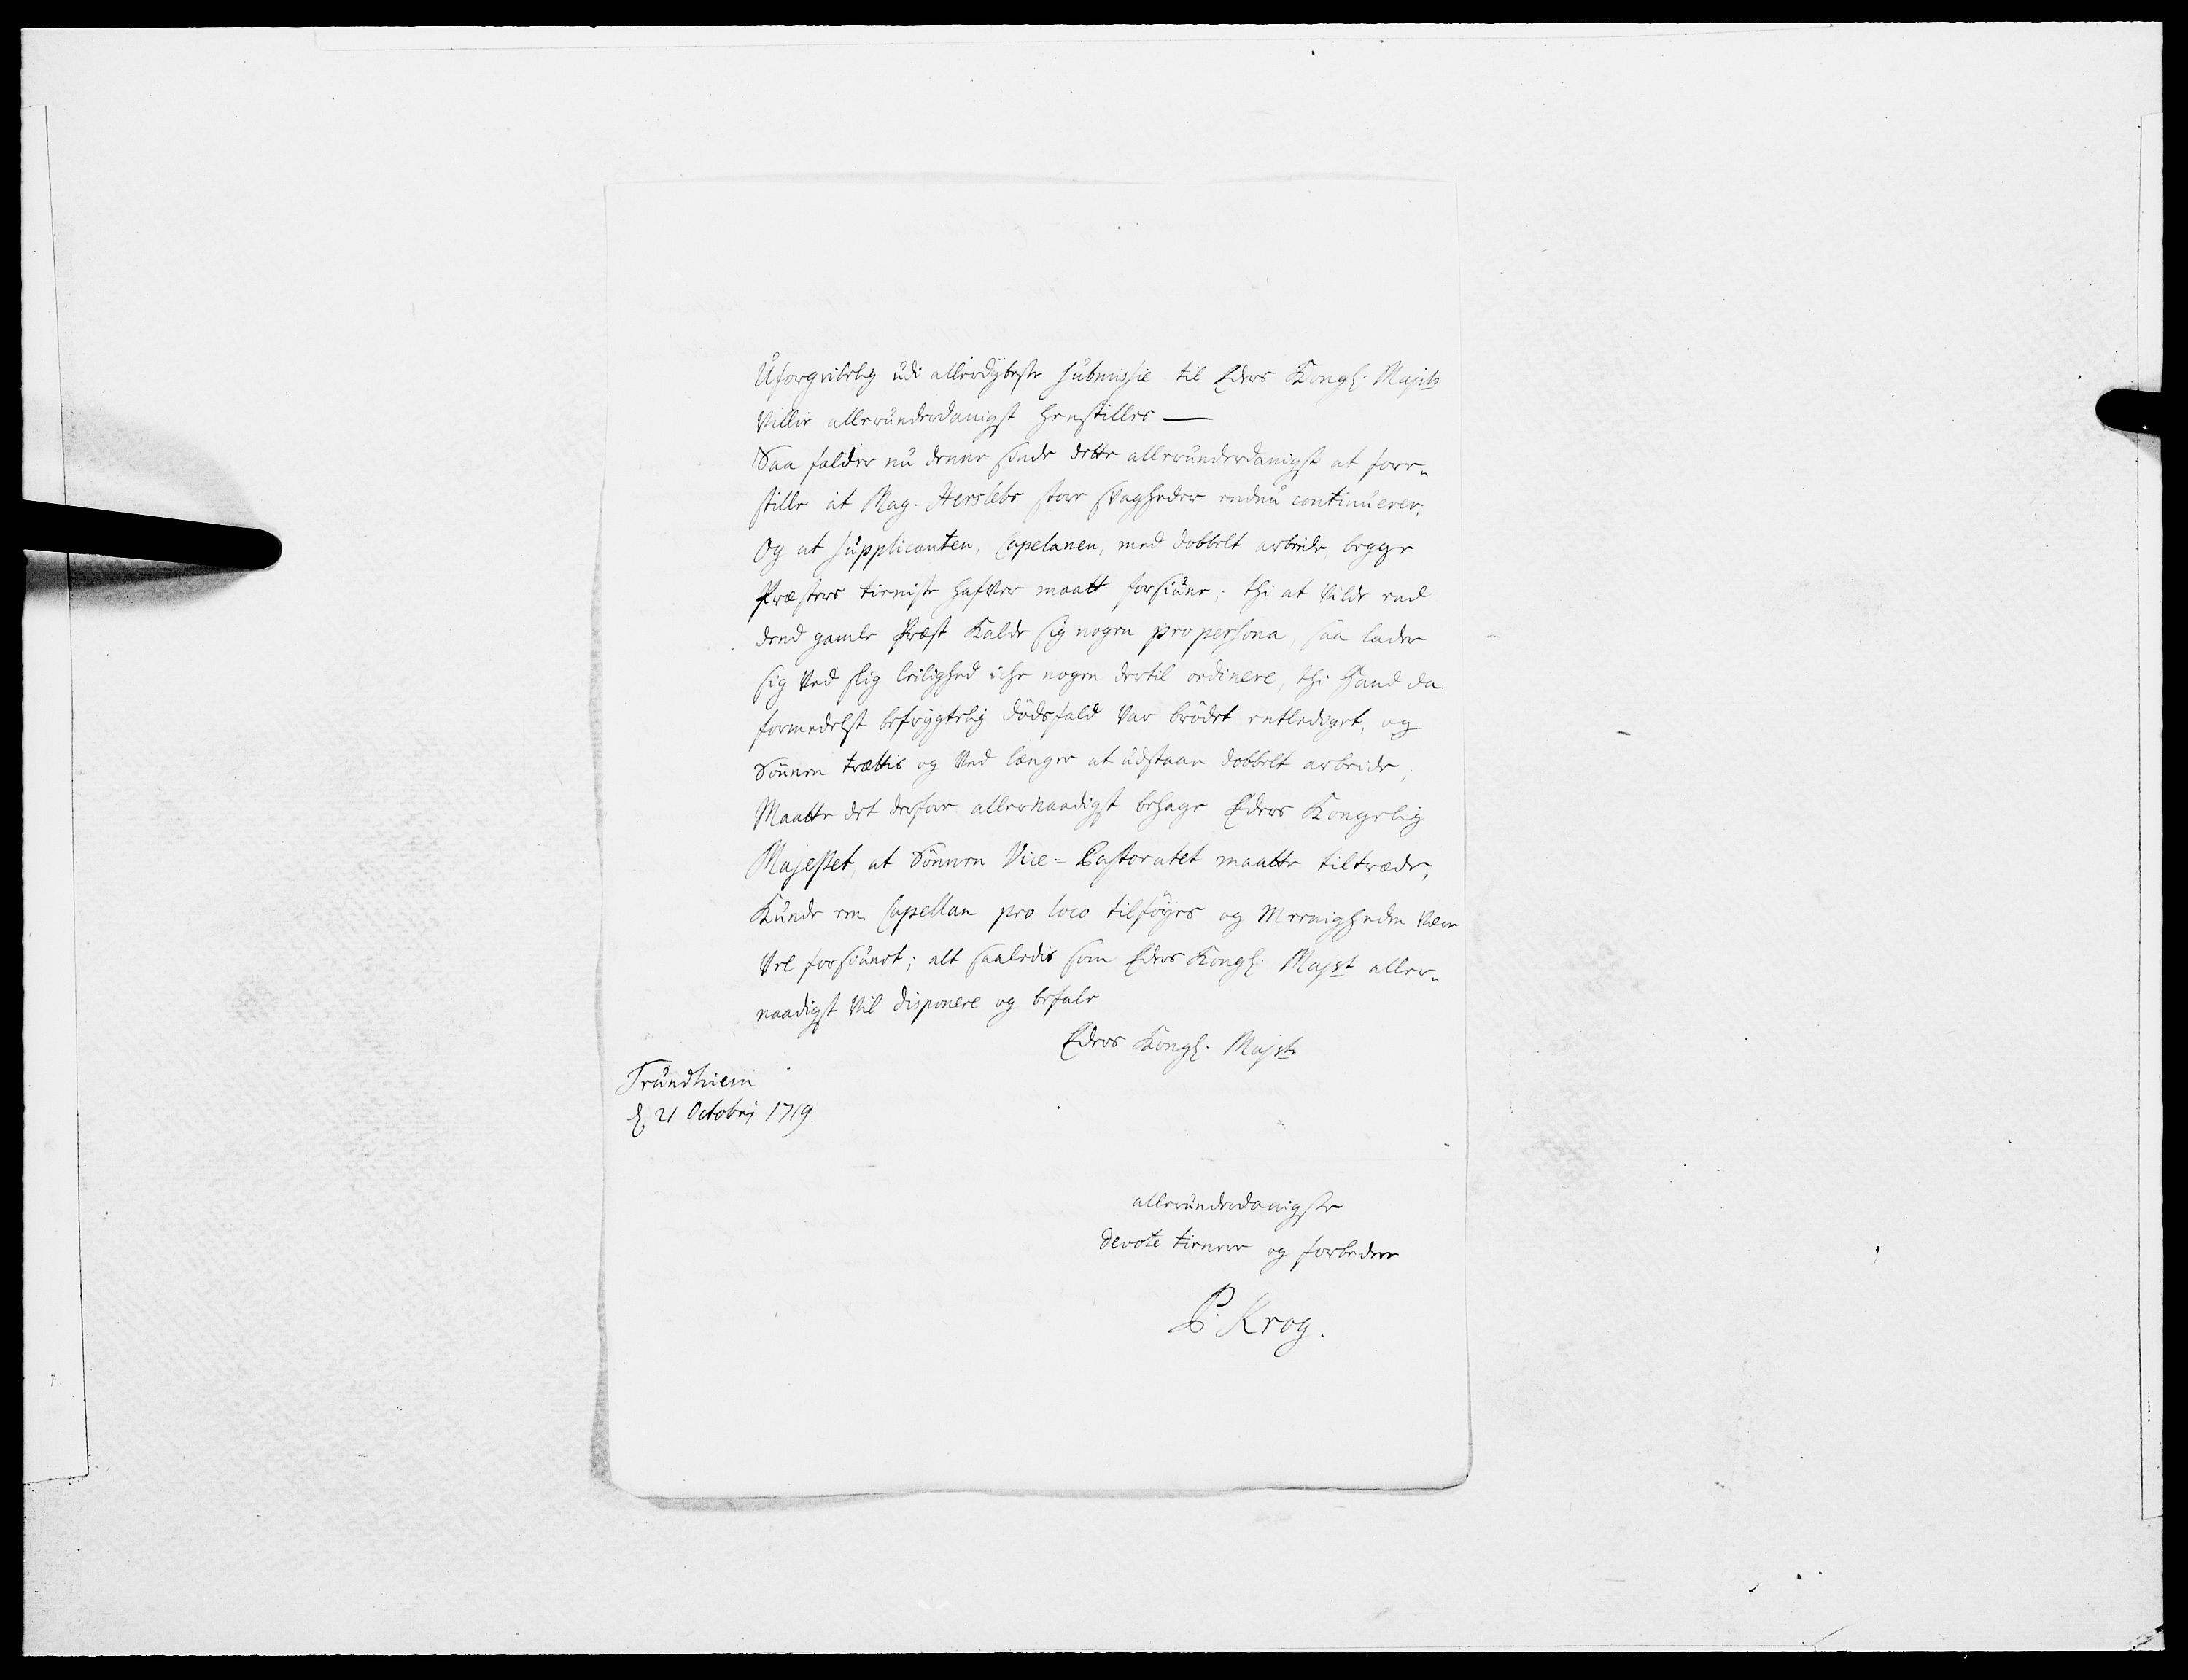 Uforgribelig udi allerdybeste submissie til Eders Kongl: Majts
Villie allerunderdanigst henstilles —
Saa falder nu denne sinde dette allerunderdanigst at fore-
stille at Mag. Herslebs store svagheder endnu continuerer,
Og at supplicanten, Capelanen, med dobbelt arbeide, begge
Præsters tieniste hafver maatt forsiune; thi at vilde end
dend gamle Præst Kalde sig nogen pro persona, saa lader
sig ved slig leilighed iche nogen dertil ordinere, thi Hand da
formedelst befrygtelig dödsfald var brödet entlediget, og
Sönnen trættis og ved længer at udstaae dobbelt arbeide;
Maatte det derfore allernaadigst behage Eders Kongelig
Majestet, at Sönnen Vice-Pastoratet maatte tiltræde,
Kunde en Capellan pro loco tilföyes og Meenigheden være
vel forsiunet; alt saaledis som Eders Kongl: Majst aller-
naadigst vil disponere og befale
Eders Kongl: Majsts
Trundhiem
d. 21 Octobrj 1719.
allerunderdanigste
devote tienere og forbeder
P: Krog.